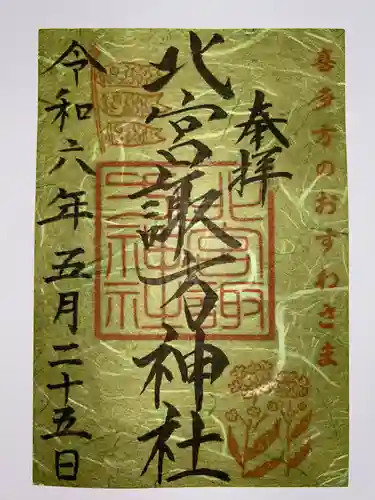 喜多方のおすわさま
奉拝
北宮諏方神社
令和六年五月二十五日